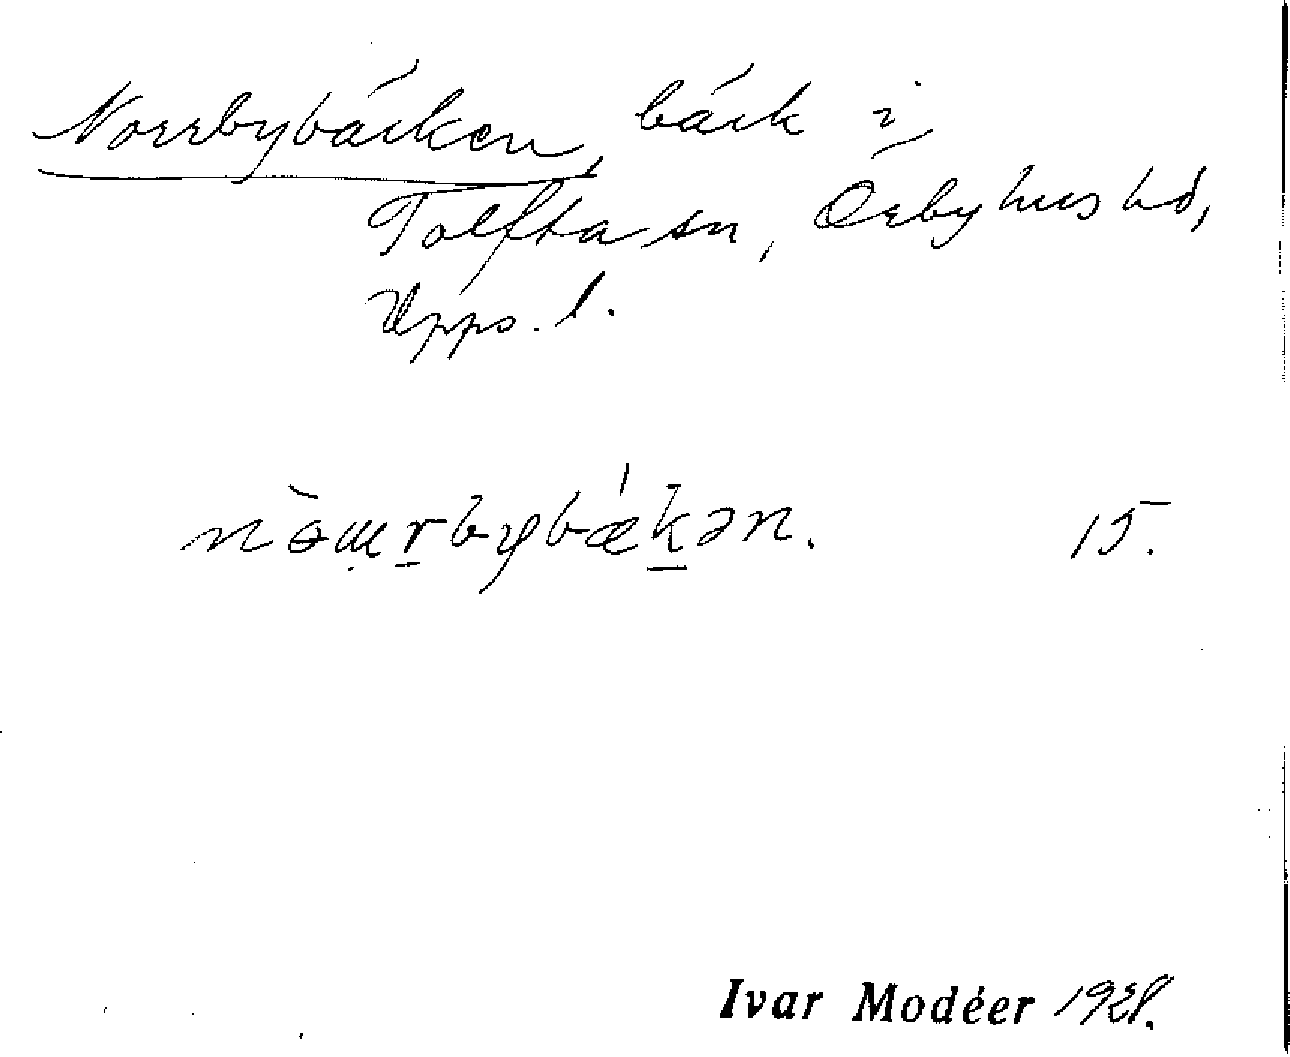 Norrbybäcken, bäck i
Tolfta sn, Örbyhus hd,
Upps. l.
15.
Ivar Modéer